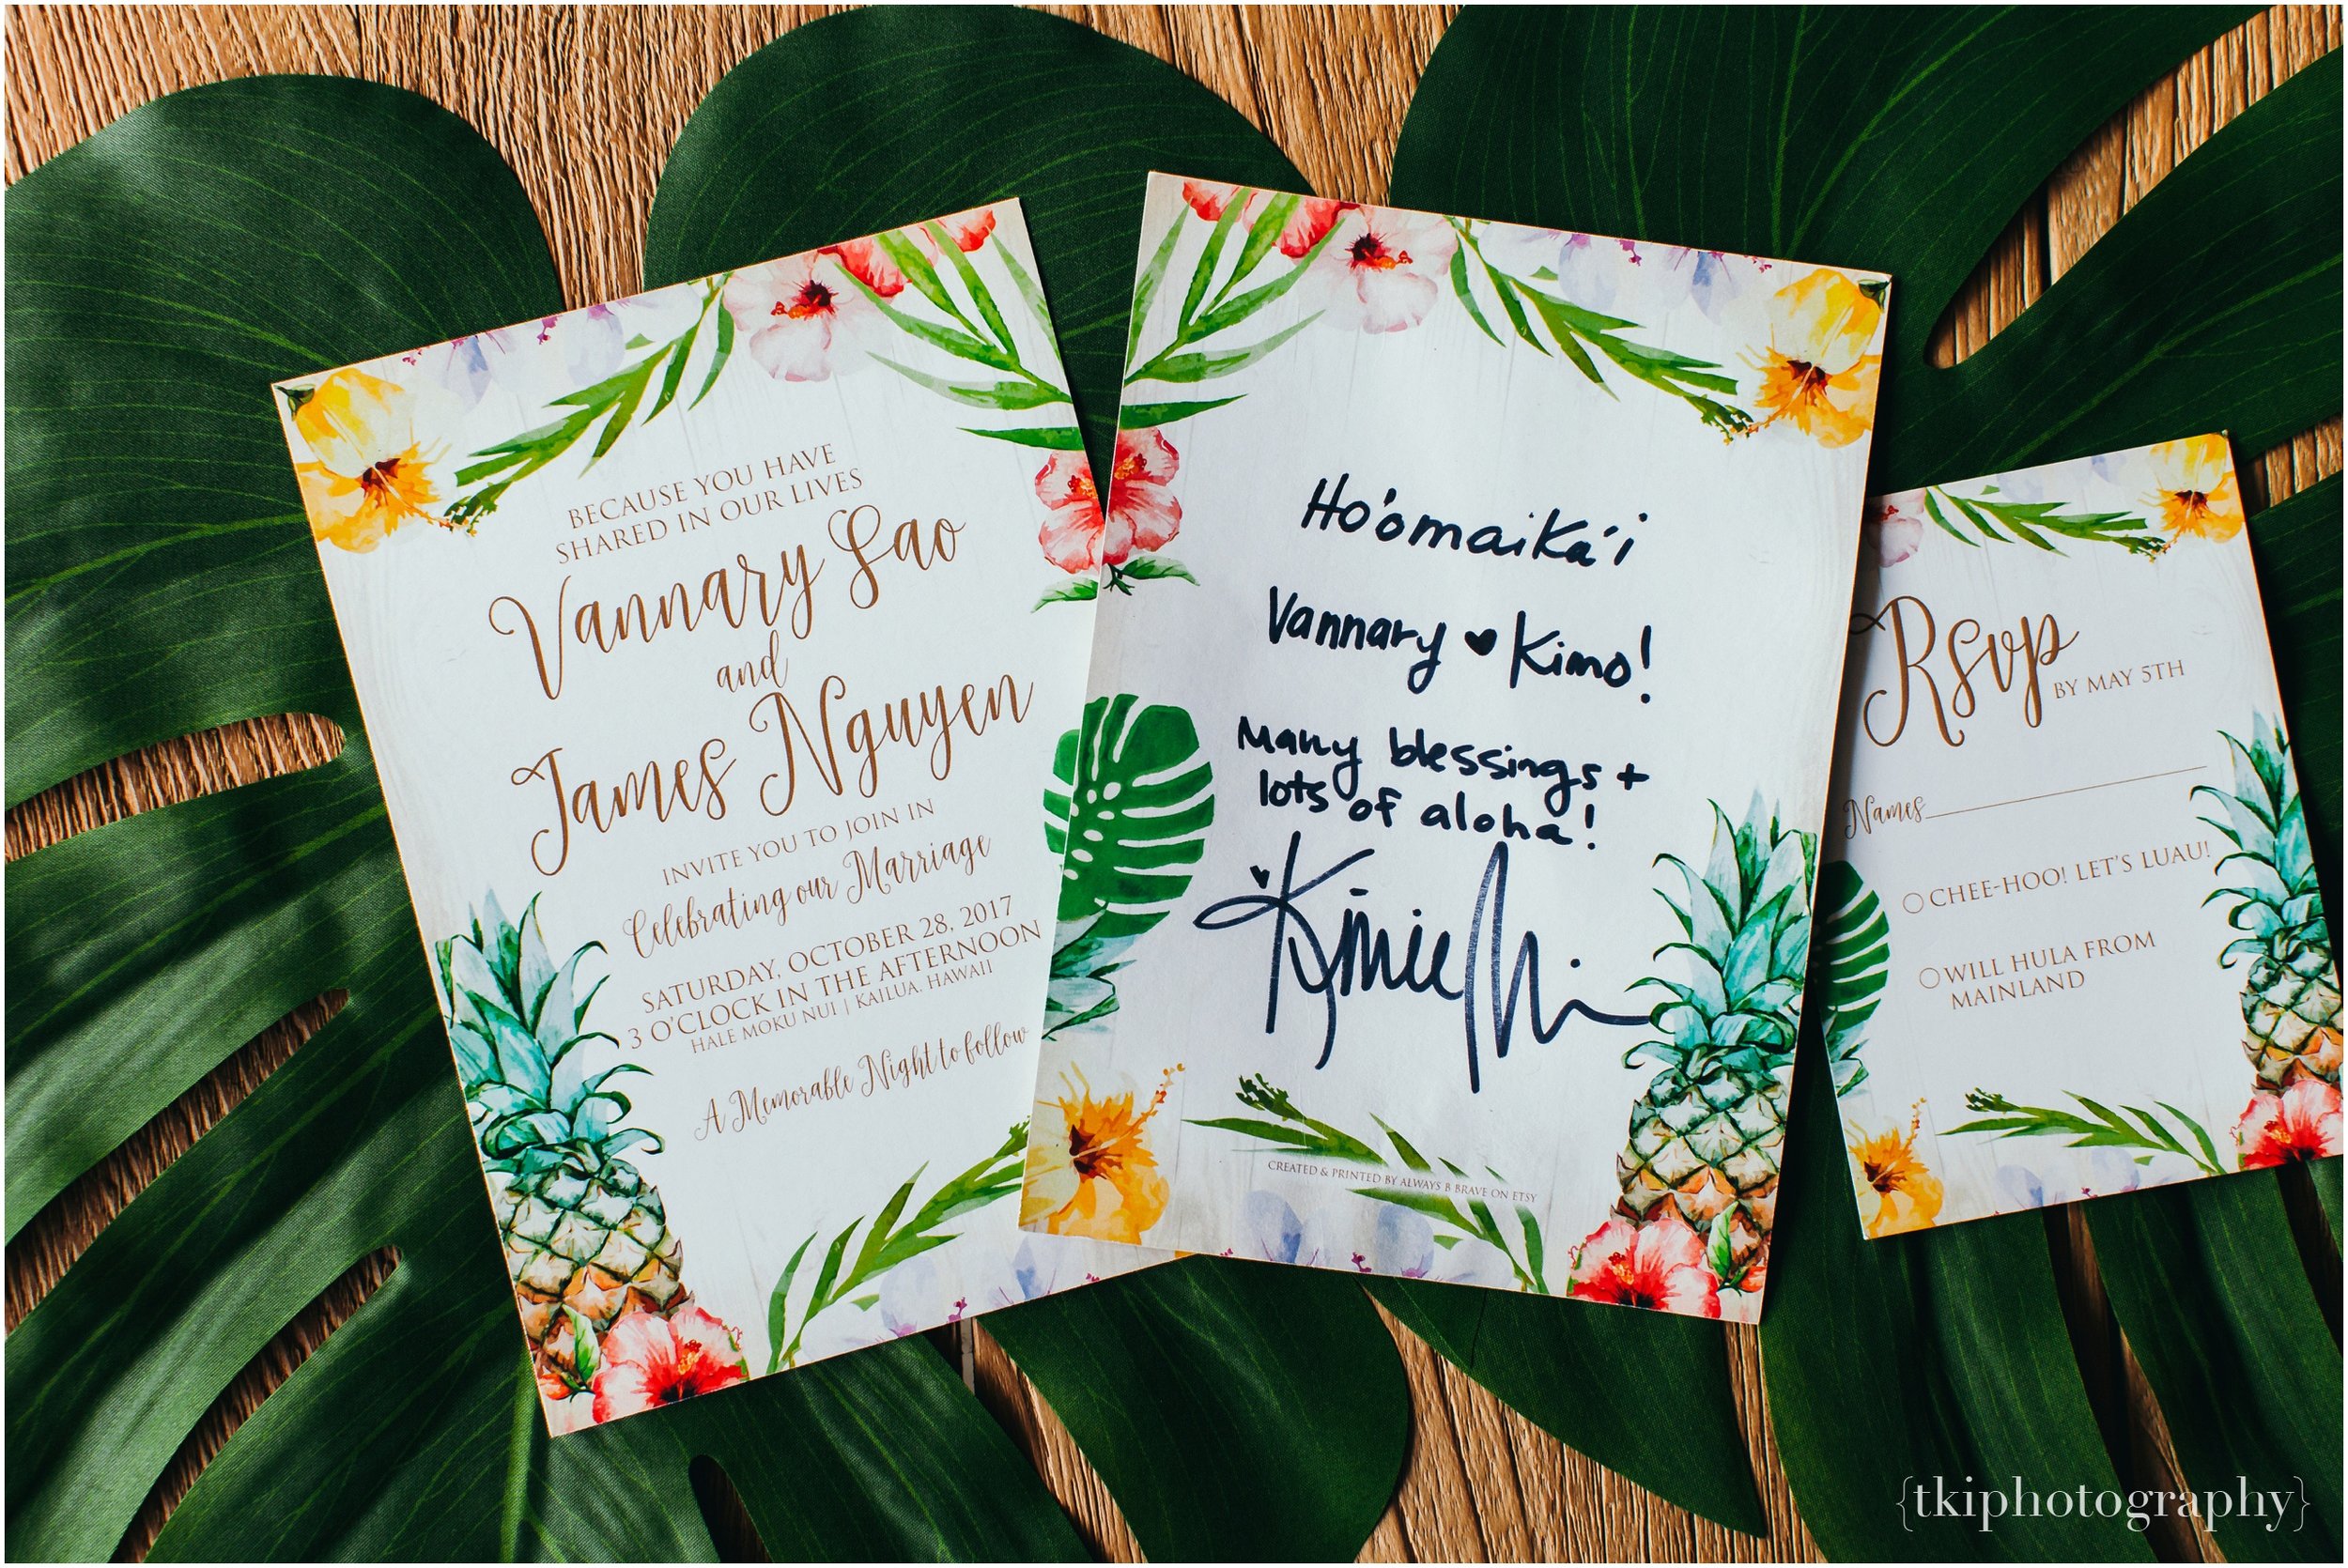 BECAUSE YOU HAVE
SHARED IN OUR LIVES
Vannary Sao
and
James Nguyen
INVITE YOU TO JOIN IN
Celebrating our Marriage
SATURDAY, OCTOBER 28, 2017
3 O'CLOCK IN THE AFTERNOON
HALE MOKU NUI | KAILUA, HAWAII
A Memorable Night to follow
Ho'omaika'i
Vannary ♥ Kimo!
Many blessings +
lots of aloha!
CREATED & PRINTED BY ALWAYS B BRAVE ON ETSY
Rsvp BY MAY 5TH
Names
CHEE-HOO! LET'S LUAU!
WILL HULA FROM
MAINLAND
{tkiphotography}